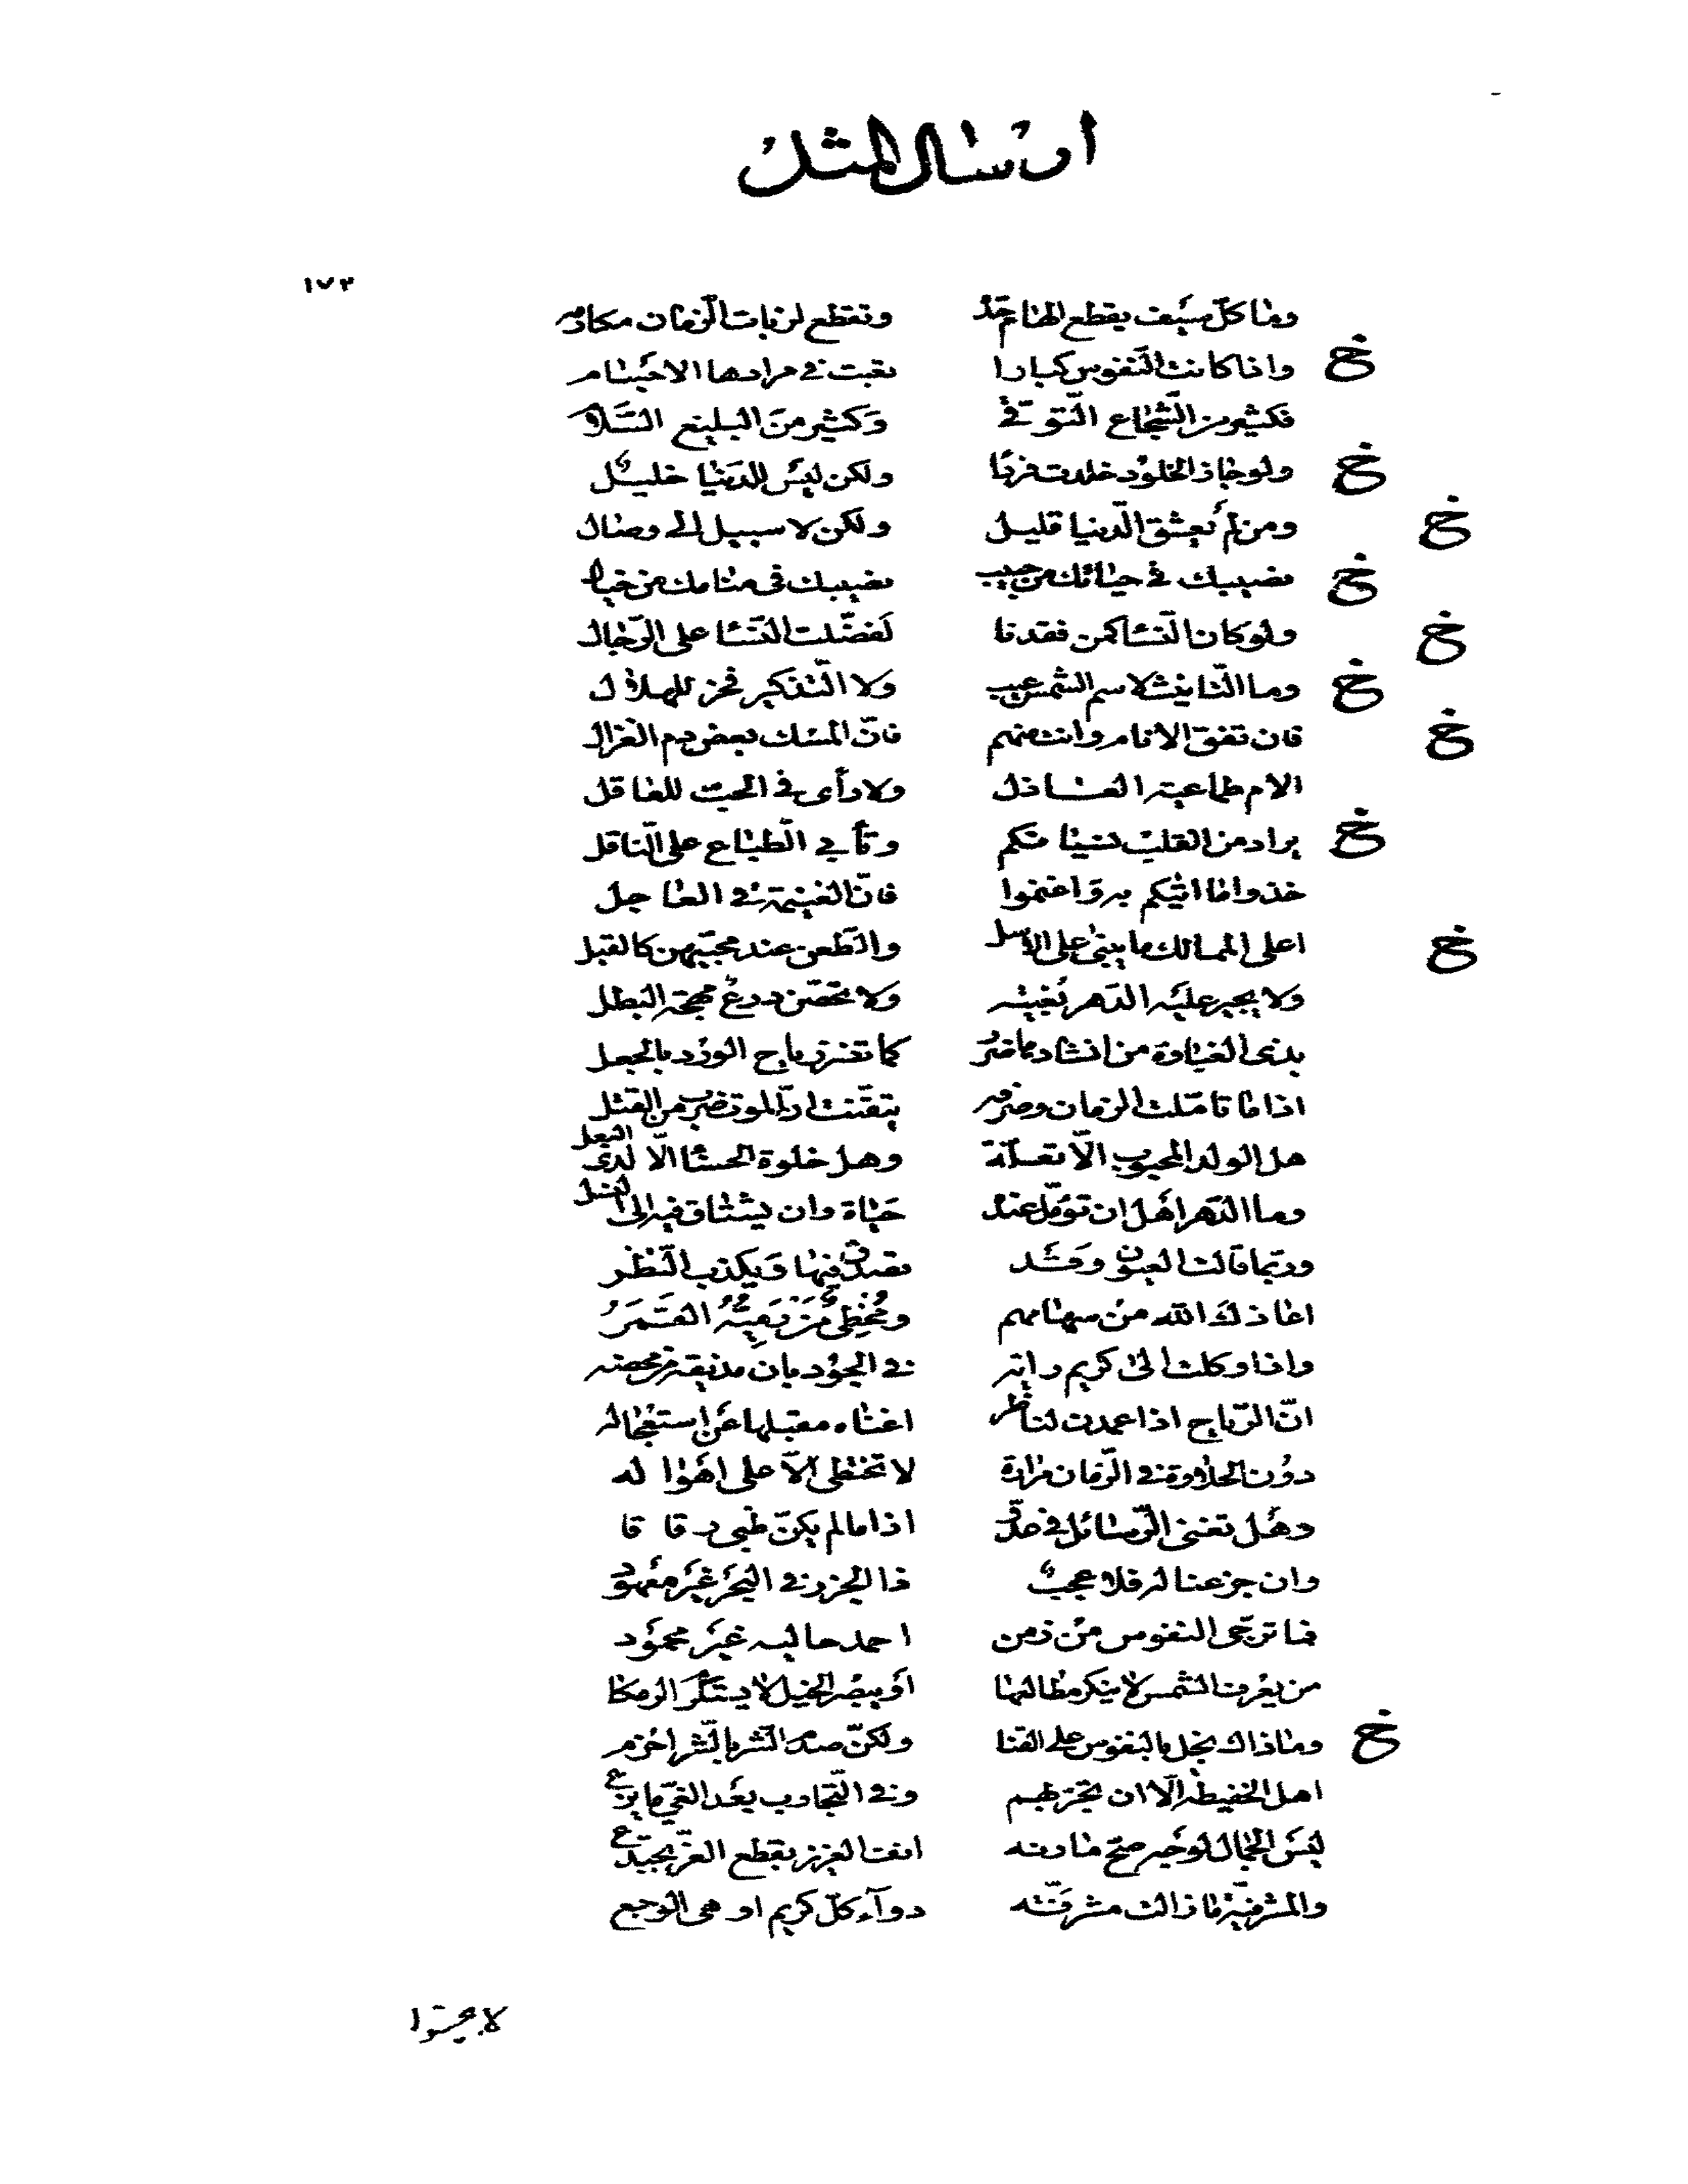 ارسال المثل
١٧٣
وما كلّ سيف يقطع الهام حدّه وتقطع لزبات الزمان مكارمه
خ واذا كانت النّفوس كبارا تعبت فى مرادها الاجسام
فكثير من الشّجاع التّوقّى وكثير من البليغ السّلام
خ ولو جاز الخلود خلدت فردًا ولكن ليس للدّنيا خليل
خ ومن لم يعشق الدّنيا قليل ولكن لا سبيل الى وصال
خ نصيبك فى حياتك من حبيب نصيبك فى منامك من خيال
خ ولو كان النّسا كمن فقدنا لفضّلت النّسا على الرّجال
خ وما التّانيث لاسم الشّمس عيب ولا التّذكير فخر للهلال
خ فان تفق الانام وانت منهم فانّ المسك بعض دم الغزال
الام طماعية العاذل ولا رأى فى الحبّ للعاقل
خ يراد من القلب نسيانكم وتأبى الطّباع على النّاقل
خذوا ما اتيكم به واغنموا فانّ الغنيمة فى العاجل
خ اعلى الممالك ما يبنى على الاسل والطّعن عند محبّيهن كالقبل
ولا يجير عليه الدّهر بغيته ولا تحصّن درع مهجة البطل
بذى الغباوة من انشادها ضرر كما تضرّ رياح الورد بالجعل
اذا ما تامّلت الزمان وصرفه تيقّنت انّ الموت ضرب من القتل
هل الولد المحبوب الّا تعلّة وهل خلوة الحسنا الّا لدى البعل
وما الدّهر اهل ان تؤمّل عنده حياة وان يشتاق فيه الى النسل
وربّما قالت العيون وقد تصدق فيها ويكذب النّظر
اعاذك الله من سهامهم ومخطئ من رميّه القمر
واذا وكلت الى كريم رايه فى الجود بان مذيقه من محضه
انّ الرّياح اذا عمدن لناظر اغناه مقبلها عن استعجاله
دون الحلاوة فى الزّمان مرارة لا تختطى الّا على اهواله
وهل تغنى الرّسائل فى عدوّ اذا ما لم يكنّ ظبى رقاقا
وان جزعنا له فلا عجب ذا الجزر فى البحر غير معهود
فما ترجّى النفوس من زمن احمد حاليه غير محمود
من يعرف الشّمس لا ينكر مطالعها او يبصر الخيل لا يستنكر الرمكا
خ وما ذاك بخل بالنفوس على القنا ولكنّ صدم الشّر بالشّر احزم
اهل الحفيظة الّا ان تجرّبهم وفى التّجارب بعد الغىّ ما يزع
ليس الجمال لوجه صحّ مارنه انف العزيز بقطع العزّ يجتدع
والمشرفيّة ما زالت مشرّفة دوآء كلّ كريم او هى الوجع